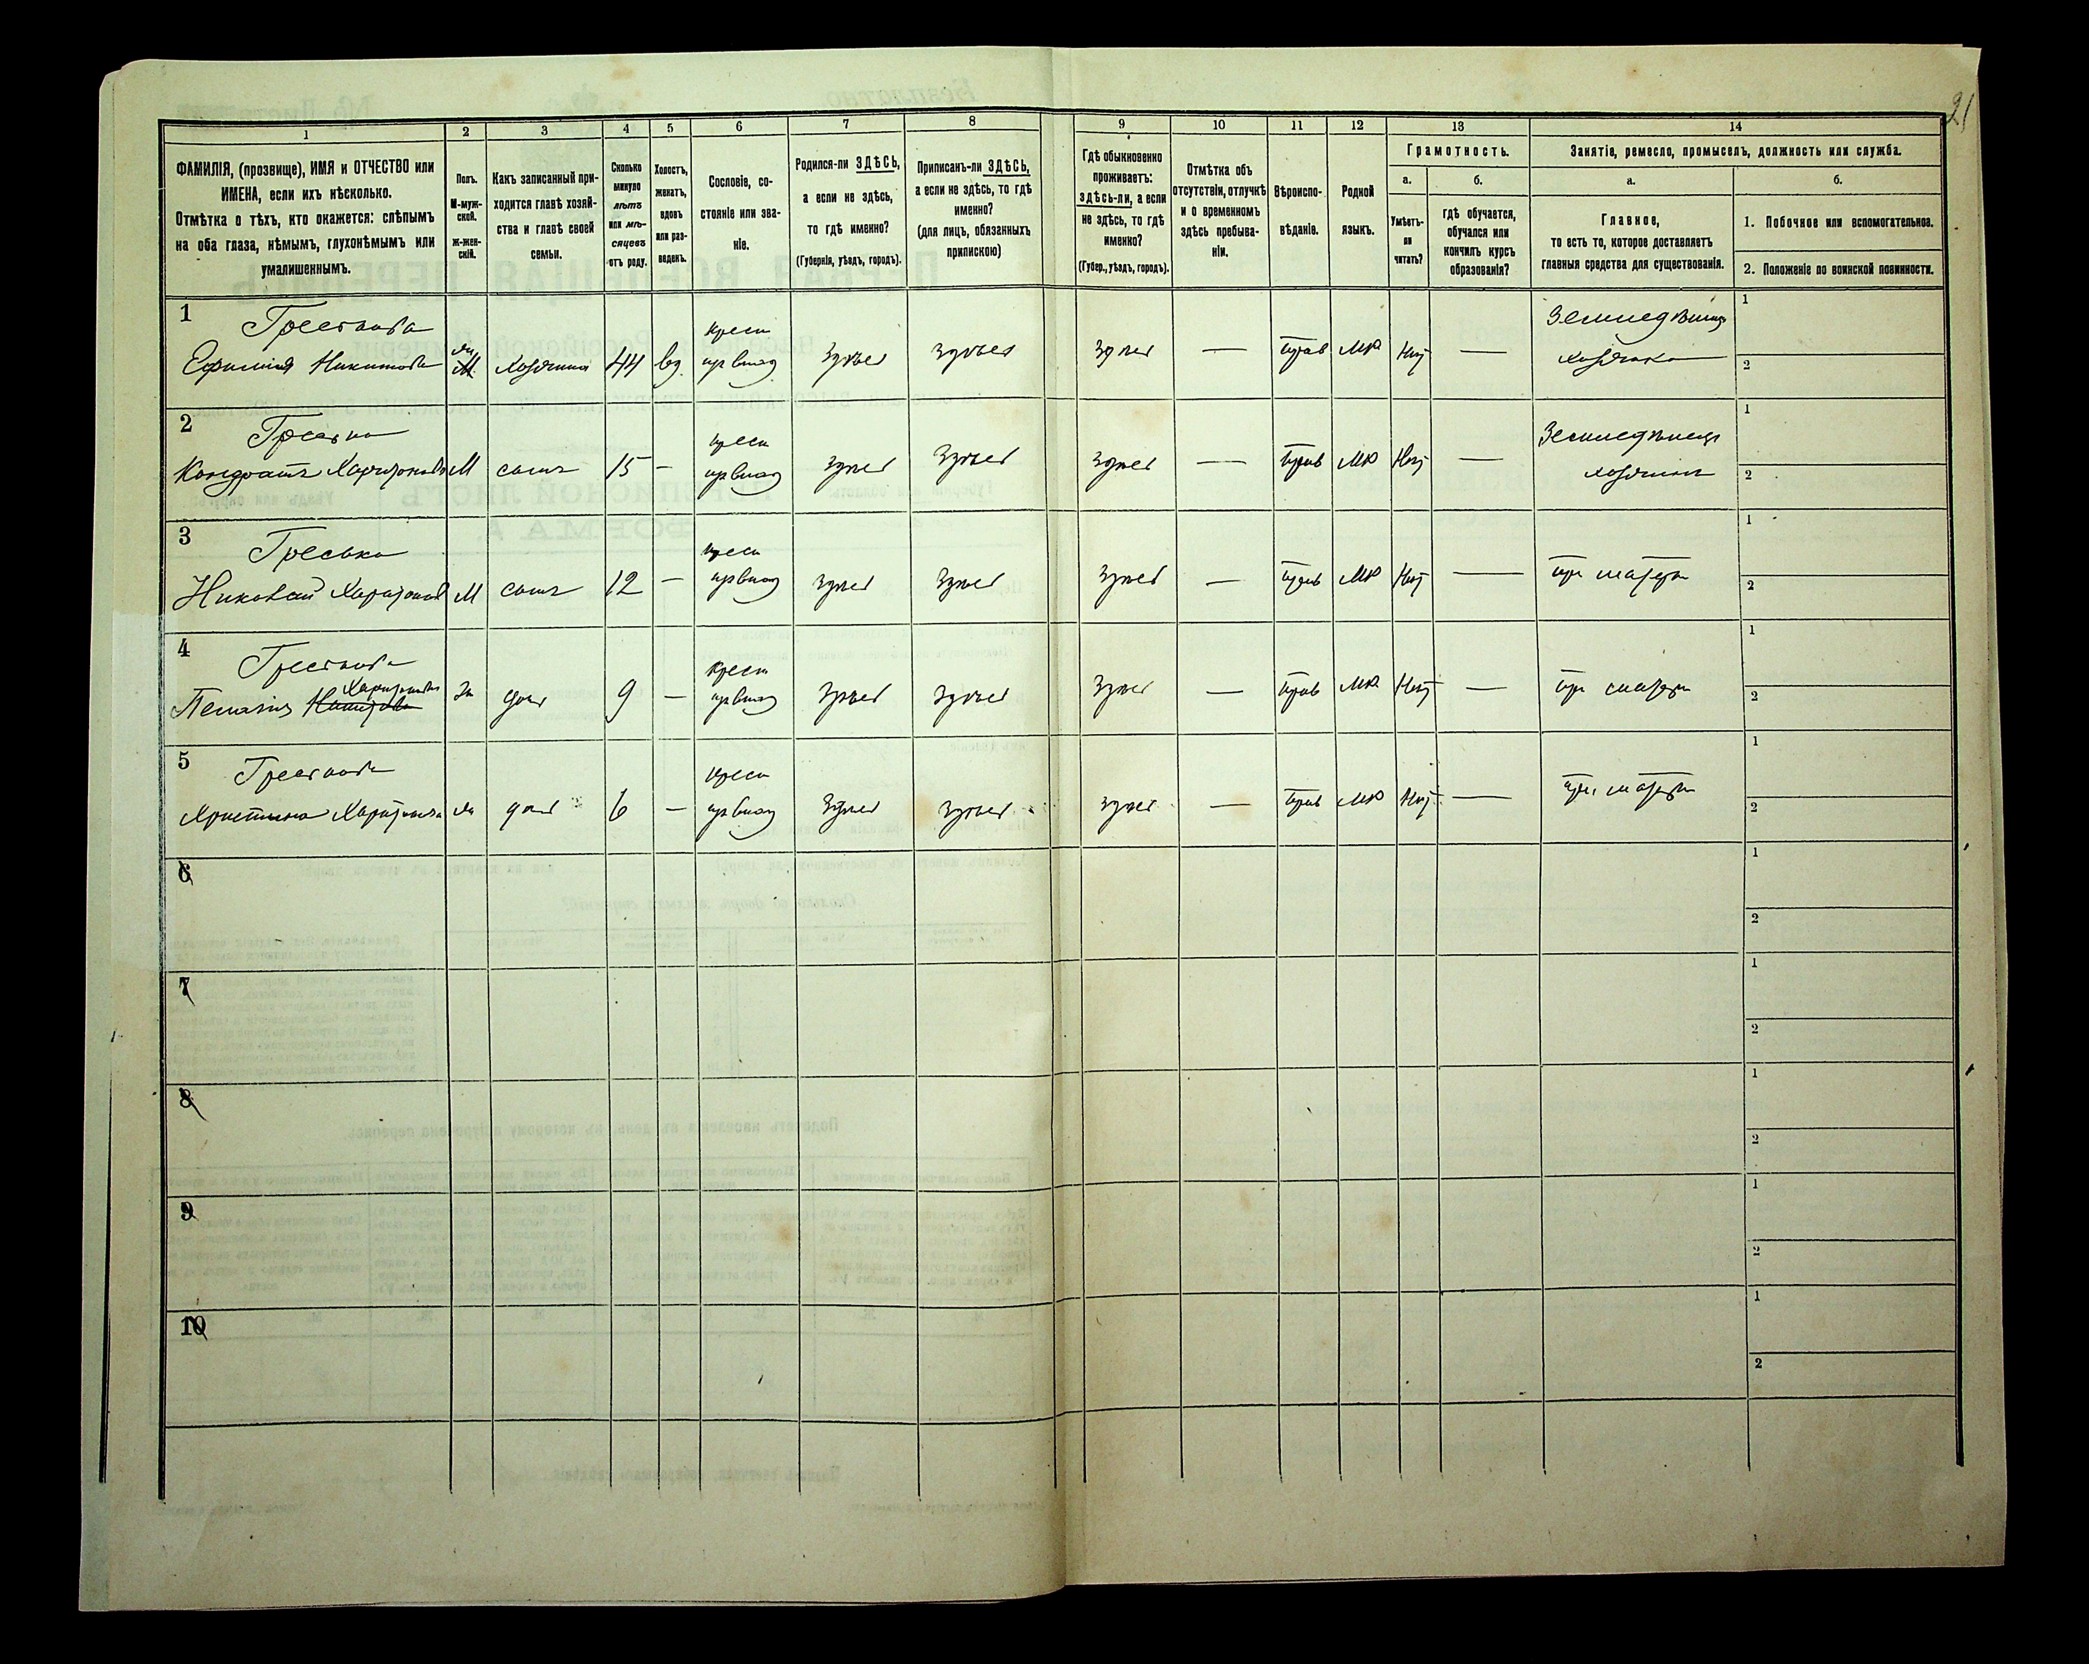 21
1
2
3
4
5
6
7
8
9
10
11
12
13
14
ФАМИЛІЯ, (прозвище), ИМЯ и ОТЧЕСТВО или
ИМЕНА, если ихъ нѣсколько.
Отмѣтка о тѣхъ, кто окажется: слѣпымъ
на оба глаза, нѣмымъ, глухонѣмымъ или
умалишеннымъ.
Полъ.
М-муж-
ской.
ж-жен-
скій.
Какъ записанный при-
ходится главѣ хозяй-
ства и главѣ своей
семьи.
Сколько
минуло
лѣтъ
или мѣ-
сяцевъ
отъ роду.
Холостъ,
женатъ,
вдовъ
или раз-
веденъ.
Сословіе, со-
стояніе или зва-
ніе.
Родился-ли ЗДѢСЬ,
а если не здѣсь,
то гдѣ именно?
(Губернія, уѣздъ, городъ).
Приписанъ-ли ЗДѢСЬ,
а если не здѣсь, то гдѣ
именно?
(для лицъ, обязанныхъ
припискою)
Гдѣ обыкновенно
проживаетъ:
здѣсь-ли, а если
не здѣсь, то гдѣ
именно?
(Губер., уѣздъ, городъ).
Отмѣтка объ
отсутствіи, отлучкѣ
и о временномъ
здѣсь пребыва-
ніи.
Вѣроиспо-
вѣданіе.
Родной
языкъ.
Грамотность.
а.
Умѣетъ-
ли
читать?
б.
гдѣ обучается,
обучался или
кончилъ курсъ
образованія?
Занятіе, ремесло, промыселъ, должность или служба.
а.
Главное,
то есть то, которое доставляетъ
главныя средства для существованія.
б.
1. Побочное или вспомогательное.
2. Положеніе по воинской повинности.
1
Ефимія Никитова
44 вд. крест
здѣсь здѣсь здѣсь — прав МР Нѣт —
хозяйка
1
2
2
Кондратъ Харитоновъ М сынъ 15 — крест
здѣсь здѣсь здѣсь — прав МР Нѣт —
хозяинъ
1
2
3
Гресько
Николай Харитонов М сынъ 12 — крест
здѣсь здѣсь здѣсь — прав МР Нѣт — при матери
1
2
4
Харитонова
Пелагія Никитова ж доч 9 — крест
здѣсь здѣсь здѣсь — прав МР Нѣт — при матери
1
2
5
Христина Харитонова ж доч 6 — крест
здѣсь здѣсь здѣсь — прав МР Нѣт — при матери
1
2
6
1
2
7
1
2
8
1
2
9
1
2
10
1
2